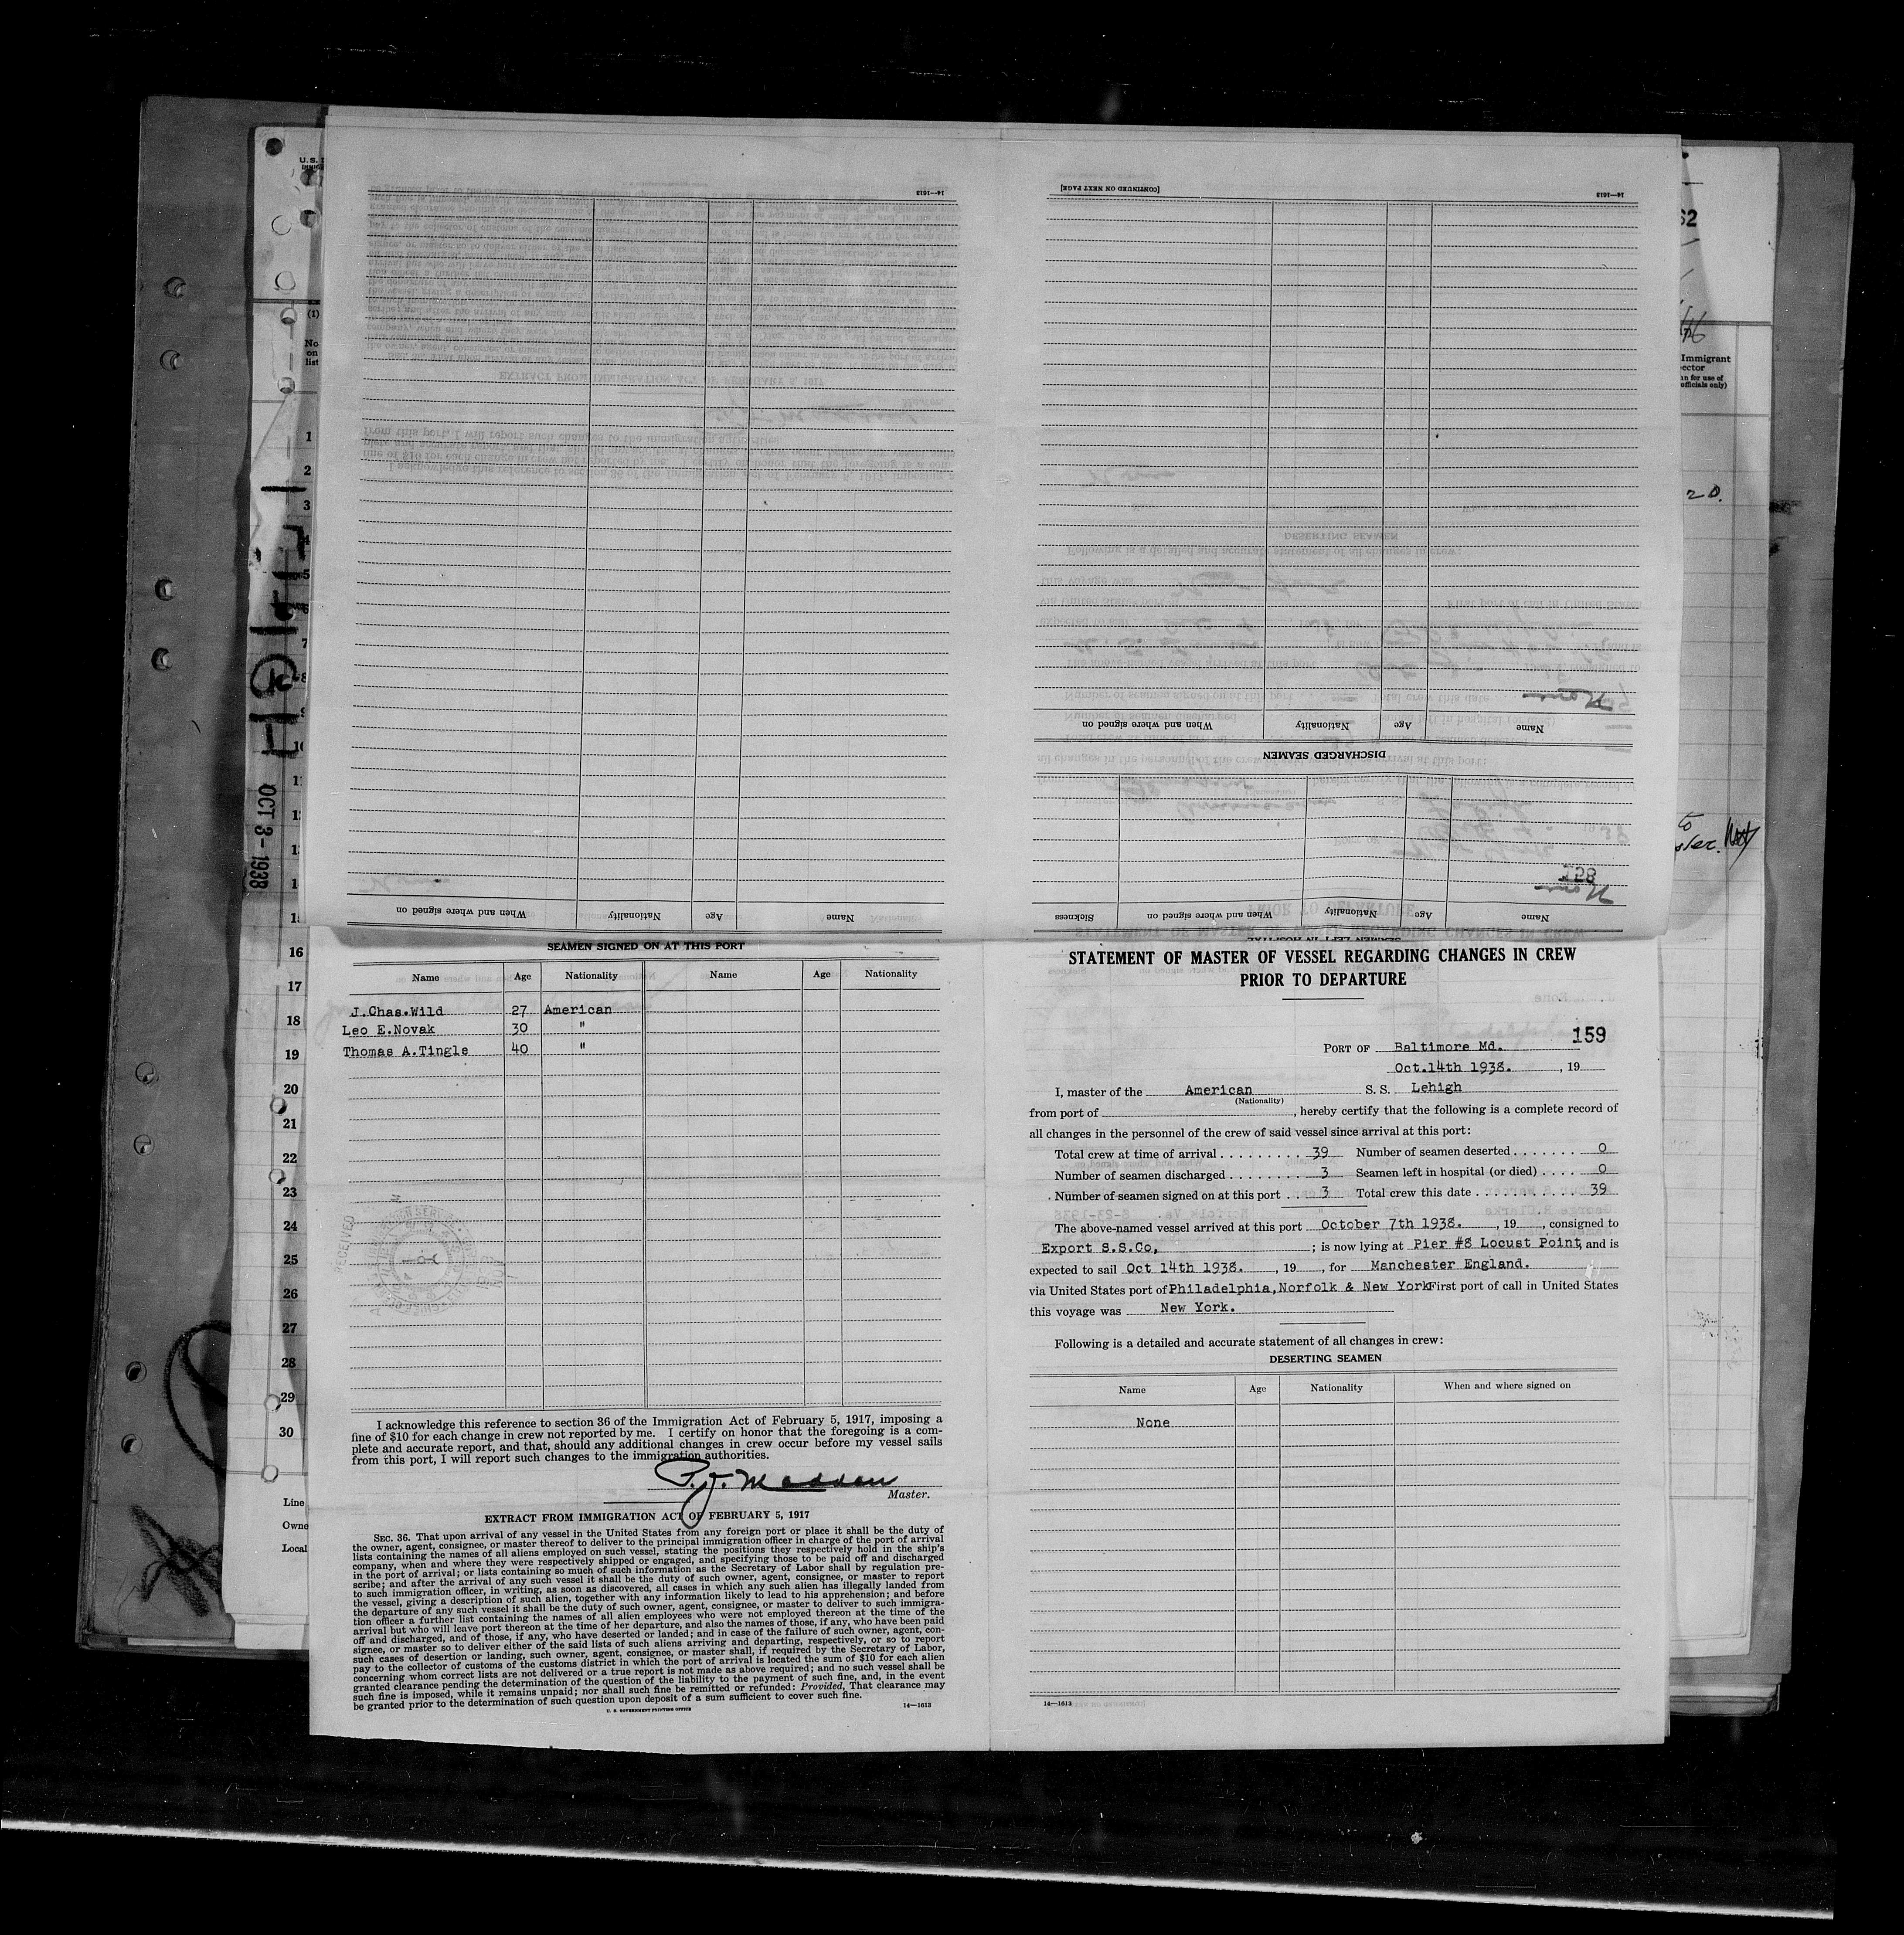 STATEMENT OF MASTER OF VESSEL REGARDING CHANGES IN CREW
PRIOR TO DEPARTURE
159
PORT OF Baltimore Md.
Oct.14th 1938. , 19
I, master of the American S. S. Lehigh
(Nationality)
from port of , hereby certify that the following is a complete record of
all changes in the personnel of the crew of said vessel since arrival at this port:
Total crew at time of arrival . . . . . . . . . 39 Number of seamen deserted . . . . . . . 0
Number of seamen discharged . . . . . . . . 3 Seamen left in hospital (or died) . . . . 0
Number of seamen signed on at this port . . 3 Total crew this date . . . . . . . . . . . . 39
The above-named vessel arrived at this port October 7th 1938. , 19 , consigned to
Export S.S.Co, ; is now lying at Pier #8 Locust Point, and is
expected to sail Oct 14th 1938. , 19 , for Manchester England.
via United States port of Philadelphia,Norfolk & New York First port of call in United States
this voyage was New York.
Following is a detailed and accurate statement of all changes in crew:
DESERTING SEAMEN
Name Age Nationality When and where signed on
None
14—1613
SEAMEN SIGNED ON AT THIS PORT
Name Age Nationality Name Age Nationality
J.Chas.Wild 27 American
Leo E.Novak 30 "
Thomas A.Tingle 40 "
I acknowledge this reference to section 36 of the Immigration Act of February 5, 1917, imposing a
fine of $10 for each change in crew not reported by me. I certify on honor that the foregoing is a com-
plete and accurate report, and that, should any additional changes in crew occur before my vessel sails
from this port, I will report such changes to the immigration authorities.
P.J. Madden
Master.
EXTRACT FROM IMMIGRATION ACT OF FEBRUARY 5, 1917
SEC. 36. That upon arrival of any vessel in the United States from any foreign port or place it shall be the duty of
the owner, agent, consignee, or master thereof to deliver to the principal immigration officer in charge of the port of arrival
lists containing the names of all aliens employed on such vessel, stating the positions they respectively hold in the ship's
company, when and where they were respectively shipped or engaged, and specifying those to be paid off and discharged
in the port of arrival; or lists containing so much of such information as the Secretary of Labor shall by regulation pre-
scribe; and after the arrival of any such vessel it shall be the duty of such owner, agent, consignee, or master to report
to such immigration officer, in writing, as soon as discovered, all cases in which any such alien has illegally landed from
the vessel, giving a description of such alien, together with any information likely to lead to his apprehension; and before
the departure of any such vessel it shall be the duty of such owner, agent, consignee, or master to deliver to such immigra-
tion officer a further list containing the names of all alien employees who were not employed thereon at the time of the
arrival but who will leave port thereon at the time of her departure, and also the names of those, if any, who have been paid
off and discharged, and of those, if any, who have deserted or landed; and in case of the failure of such owner, agent, con-
signee, or master so to deliver either of the said lists of such aliens arriving and departing, respectively, or so to report
such cases of desertion or landing, such owner, agent, consignee, or master shall, if required by the Secretary of Labor,
pay to the collector of customs of the customs district in which the port of arrival is located the sum of $10 for each alien
concerning whom correct lists are not delivered or a true report is not made as above required; and no such vessel shall be
granted clearance pending the determination of the question of the liability to the payment of such fine, and, in the event
such fine is imposed, while it remains unpaid; nor shall such fine be remitted or refunded: Provided, That clearance may
be granted prior to the determination of such question upon deposit of a sum sufficient to cover such fine.
U. S. GOVERNMENT PRINTING OFFICE 14—1613
Name Age Nationality When and where signed on Sickness
None
128
DISCHARGED SEAMEN
Name Age Nationality When and where signed on
None
14—1613 [CONTINUED ON NEXT PAGE]
Name Age Nationality When and where signed on
14—1613
OCT 3 - 1938
U. S.
(1)
No
on
list
1
2
3
4
5
6
7
8
9
10
16
17
18
19
20
21
22
23
24
25
26
27
28
29
30
Line
Owne
Local
RECEIVED
Immigrant
ector
n for use of
officials only)
20.
to